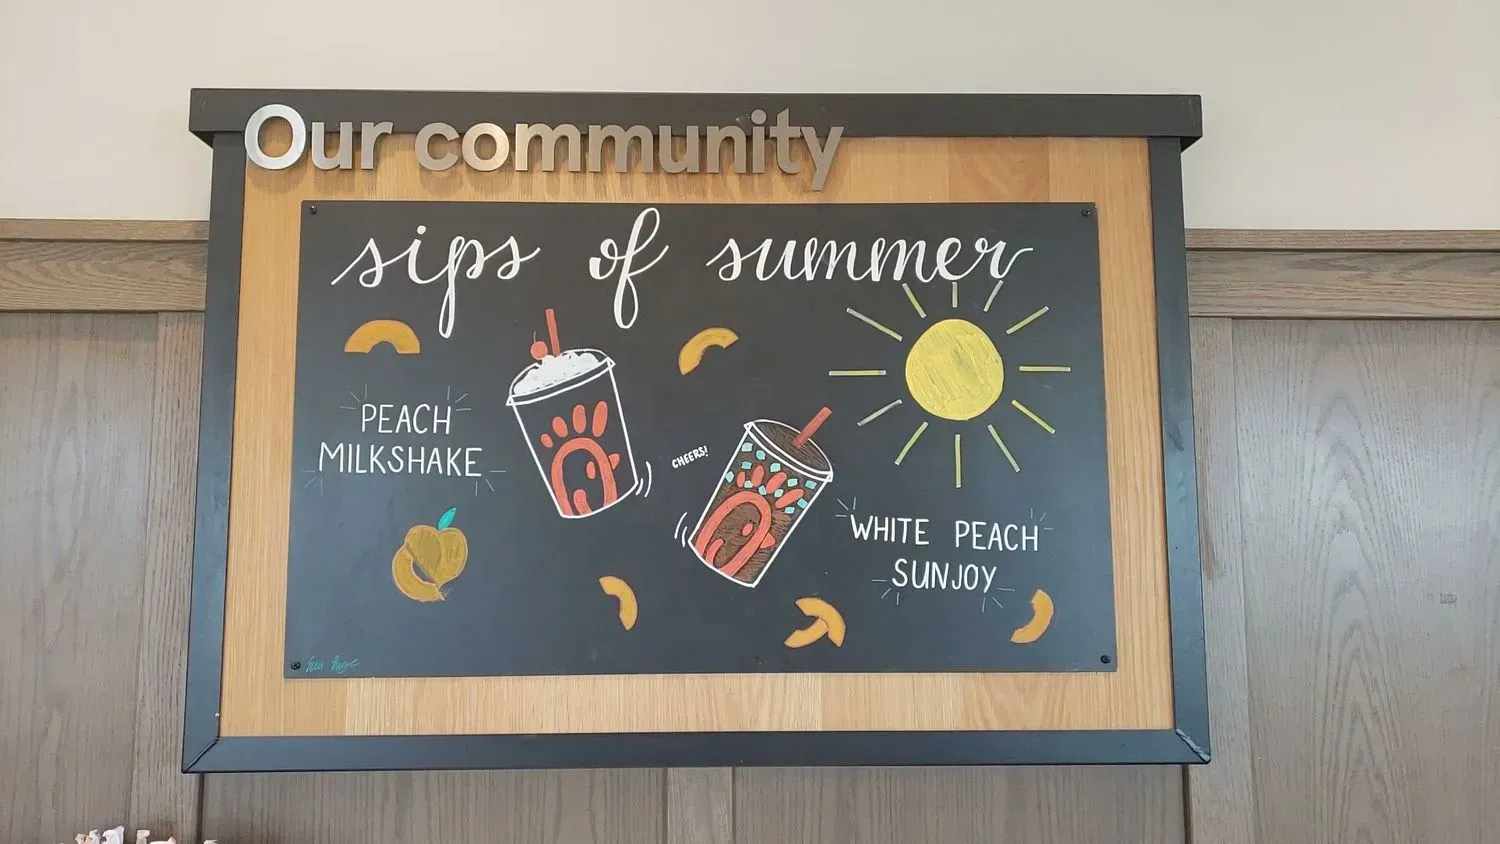 Our community
sips of summer
PEACH
MILKSHAKE
CHEERS!
WHITE PEACH
SUNJOY